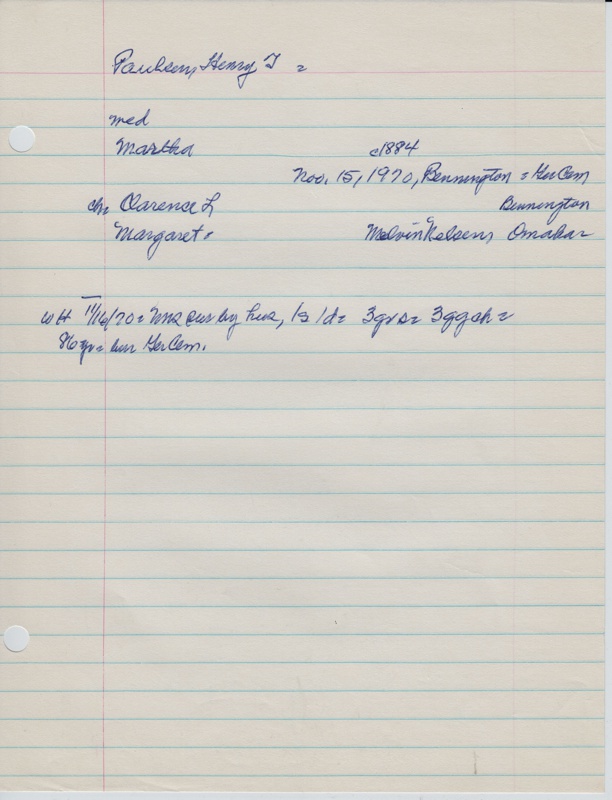 Paulsen, Henry T =
med
Martha c1884
Nov. 15, 1970, Bennington = Ger Cem
ch= Clarence L Bennington
Margaret = Melvin Nelsen, Omaha
WH 11/16/70 = Mrs sur by hus, 1s 1d = 3 grs = 3 ggch =
86 yr = bur Ger Cem.